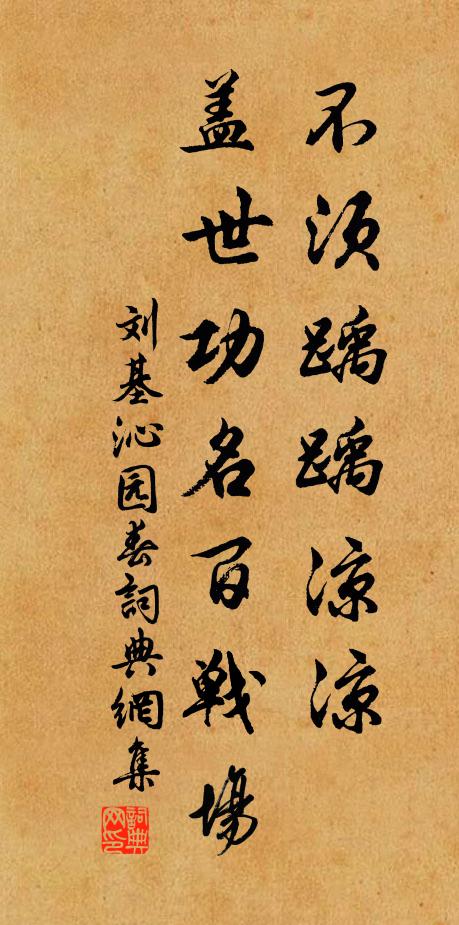 不须踽踽凉凉
盖世功名百戦場
刘基沁园春詞典網集
詞典
网印